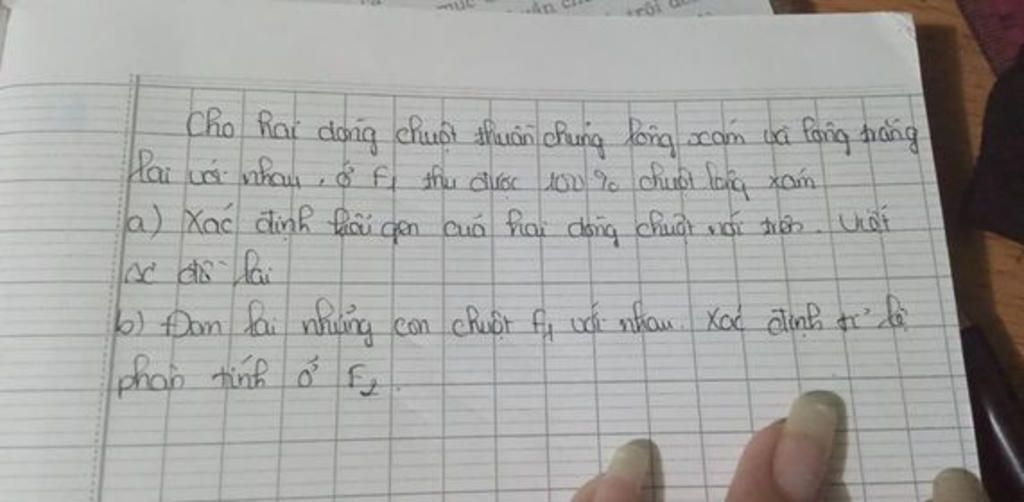 Cho hai dòng chuột thuần chủng lông xám và lông trắng
lai với nhau, ở F1 thu được 100% chuột lông xám
a) Xác định kiểu gen của hai dòng chuột nói trên. Viết
sơ đồ lai
b) Đem lai những con chuột F1 với nhau. Xác định tỉ lệ
phân tính ở F2.